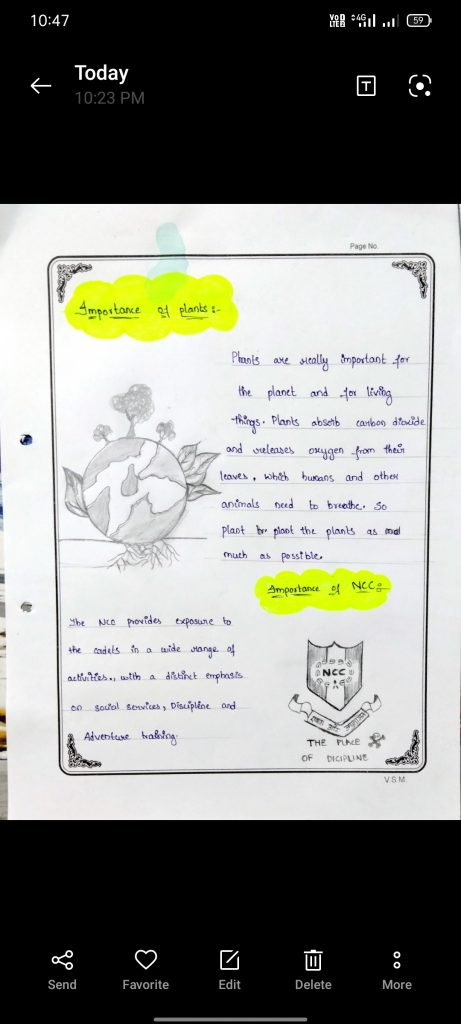 10:47
Vo) 4G
LTE2
59
Today
10:23 PM
T
Page No.
Importance of plants :-
Plants are really important for
the planet and for living
things. Plants absorb carbon dioxide
and releases oxygen from their
leaves, which humans and other
animals need to breathe. So
plant plant the plants as
much as possible.
Importance of NCC:
The NCC provides exposure to
the cadets in a wide range of
activities., with a distinct emphasis
on social services, Discipline and
Adventure training.
NCC
THE PLACE
OF DICIPLINE
V.S.M.
Send
Favorite
Edit
Delete
More